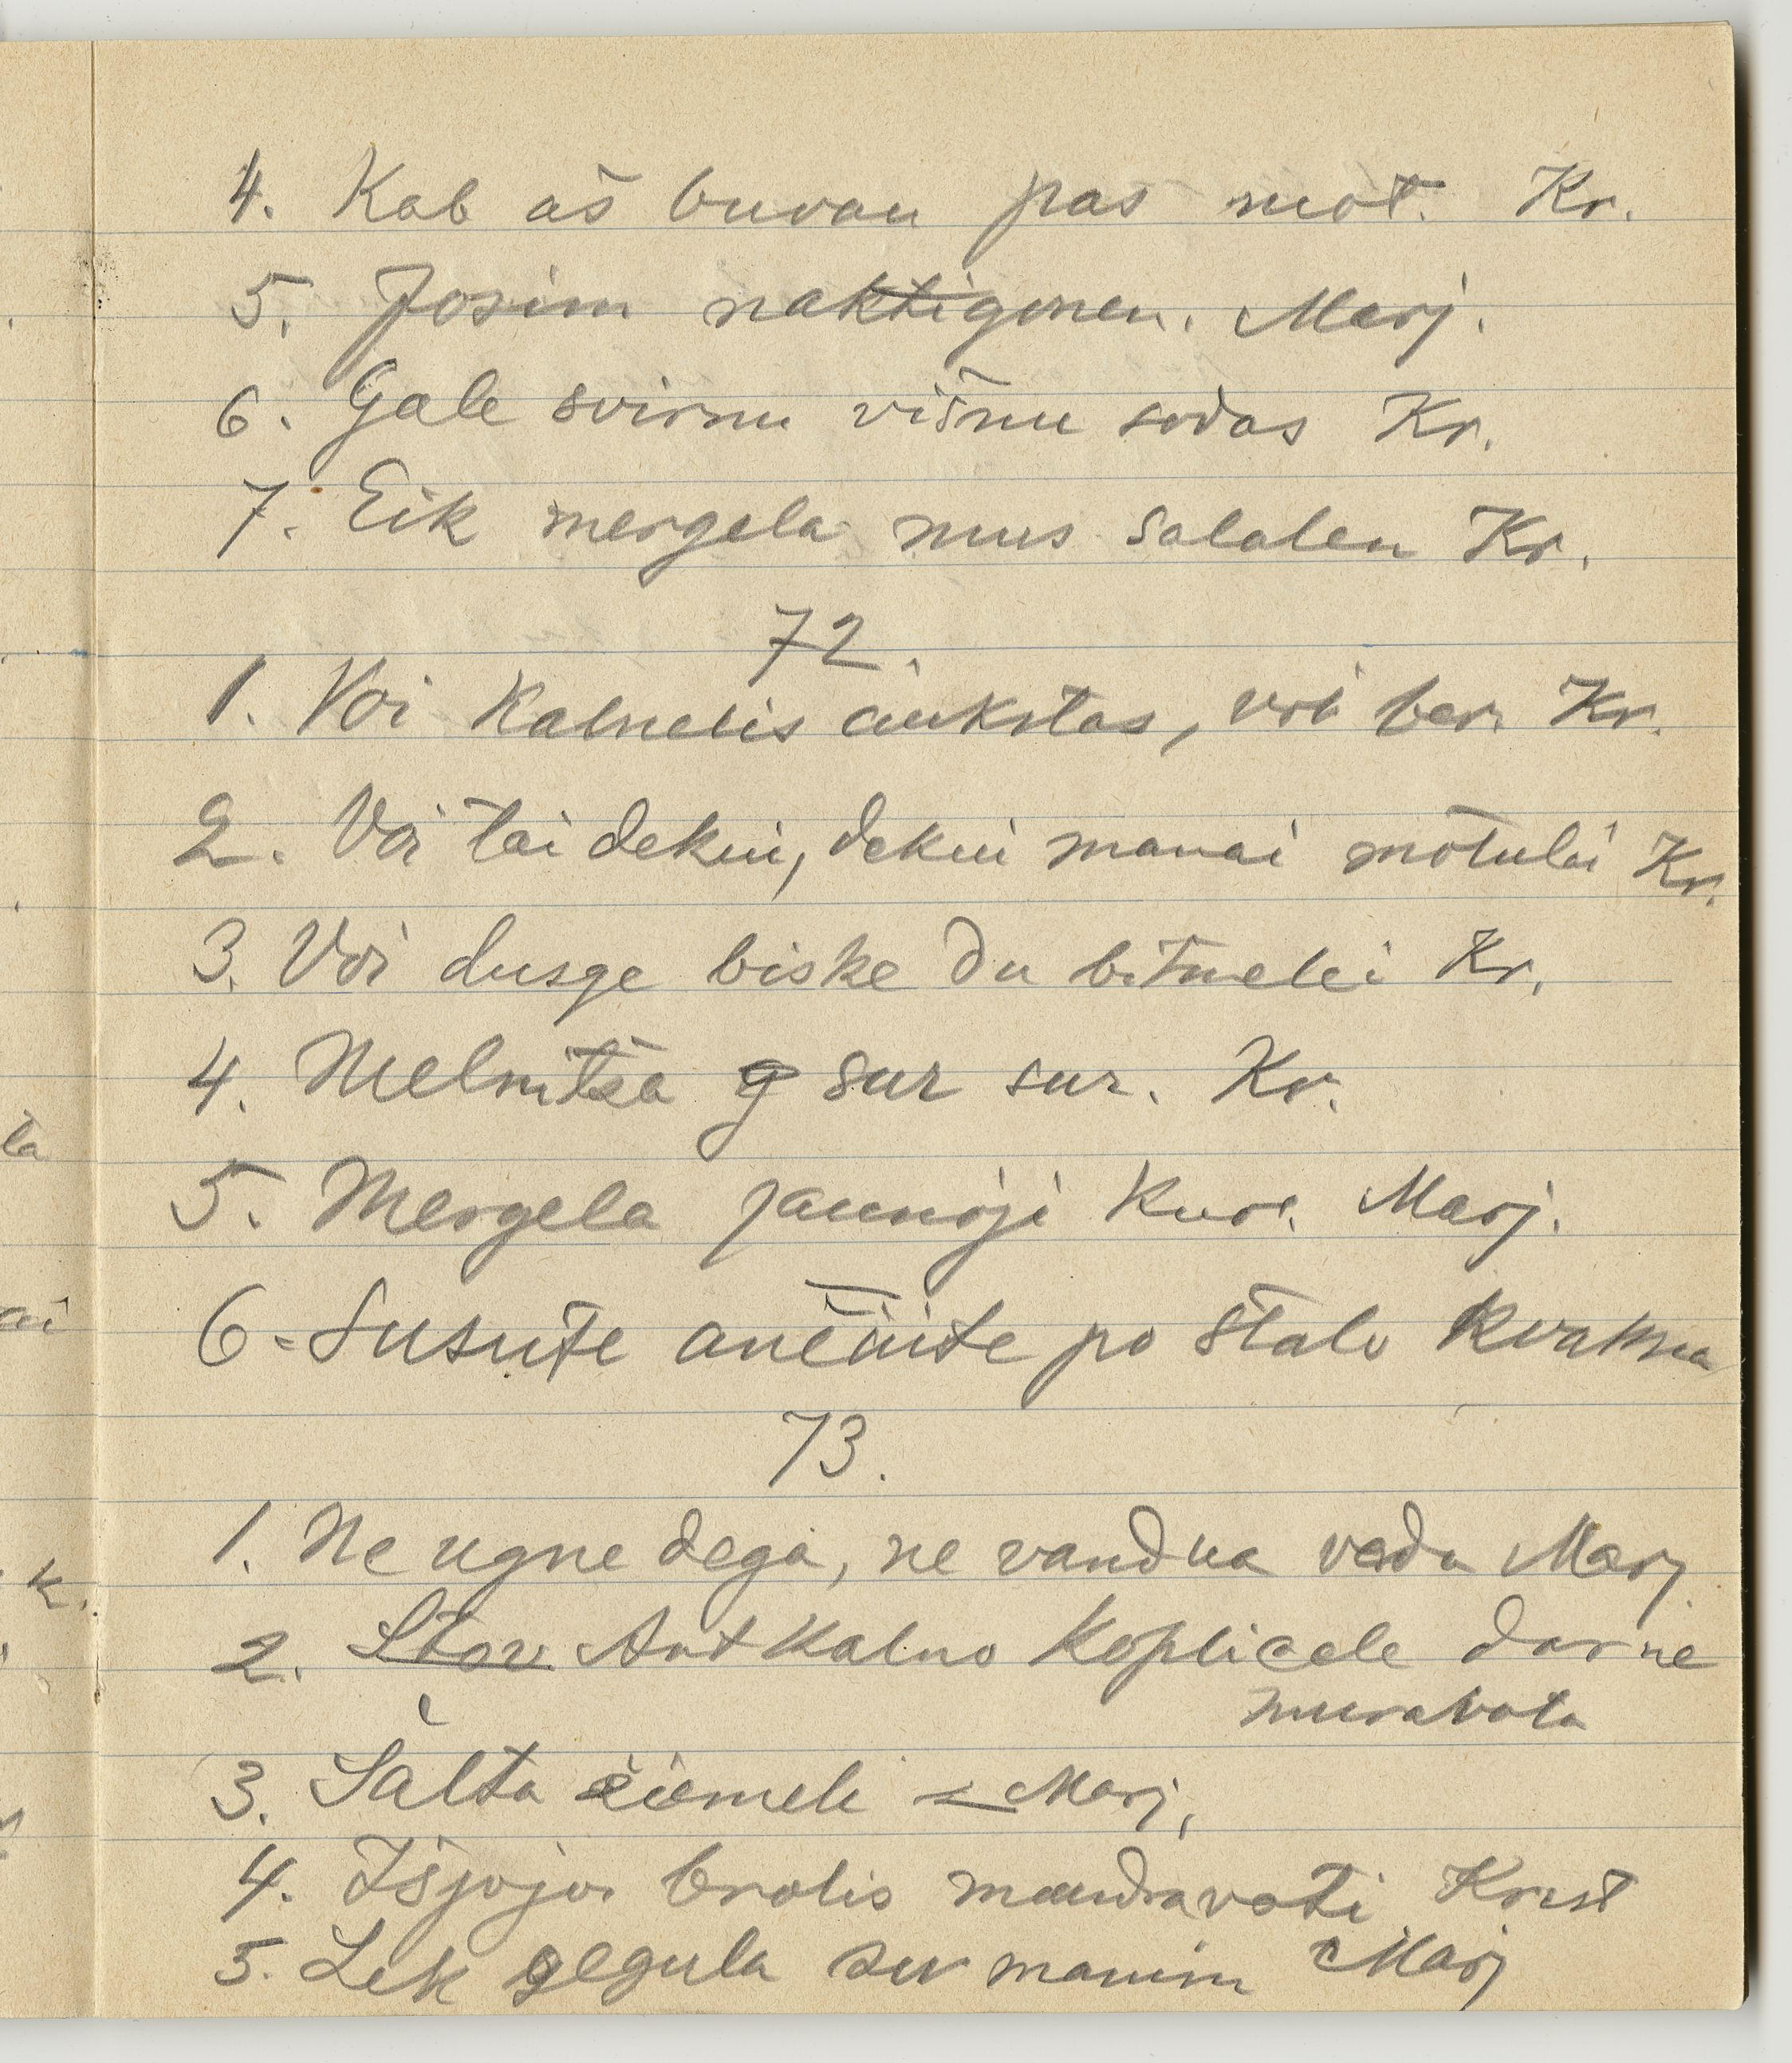 4. Kab aš buvau pas mot. Kr.
5. Josim naktigonen. Marj.
6. Gale svirnu višnu sodas Kr.
7. Eik mergela mus salalen Kr.
72.
1. Voi kalnelis aukstas, voi ber. Kr.
2. Voi tai dekui, dekui manai motulei Kr.
3. Voi dusge biske du bitnelei Kr.
4. Melnitša g sur sur. Kr.
5. Mergela jaunoji kur. Marj.
6. Susute po stalo kvakua
73.
1. Ne ugne dega, ne vandua veda Marj
2. Stov Ant kalno koplicele dar ne
muravota
3. Šalta žiemele Marj.
4. Išjojo brolis maudravoti Krist
5. Lek gegula su manim Marj
la
ai
k.